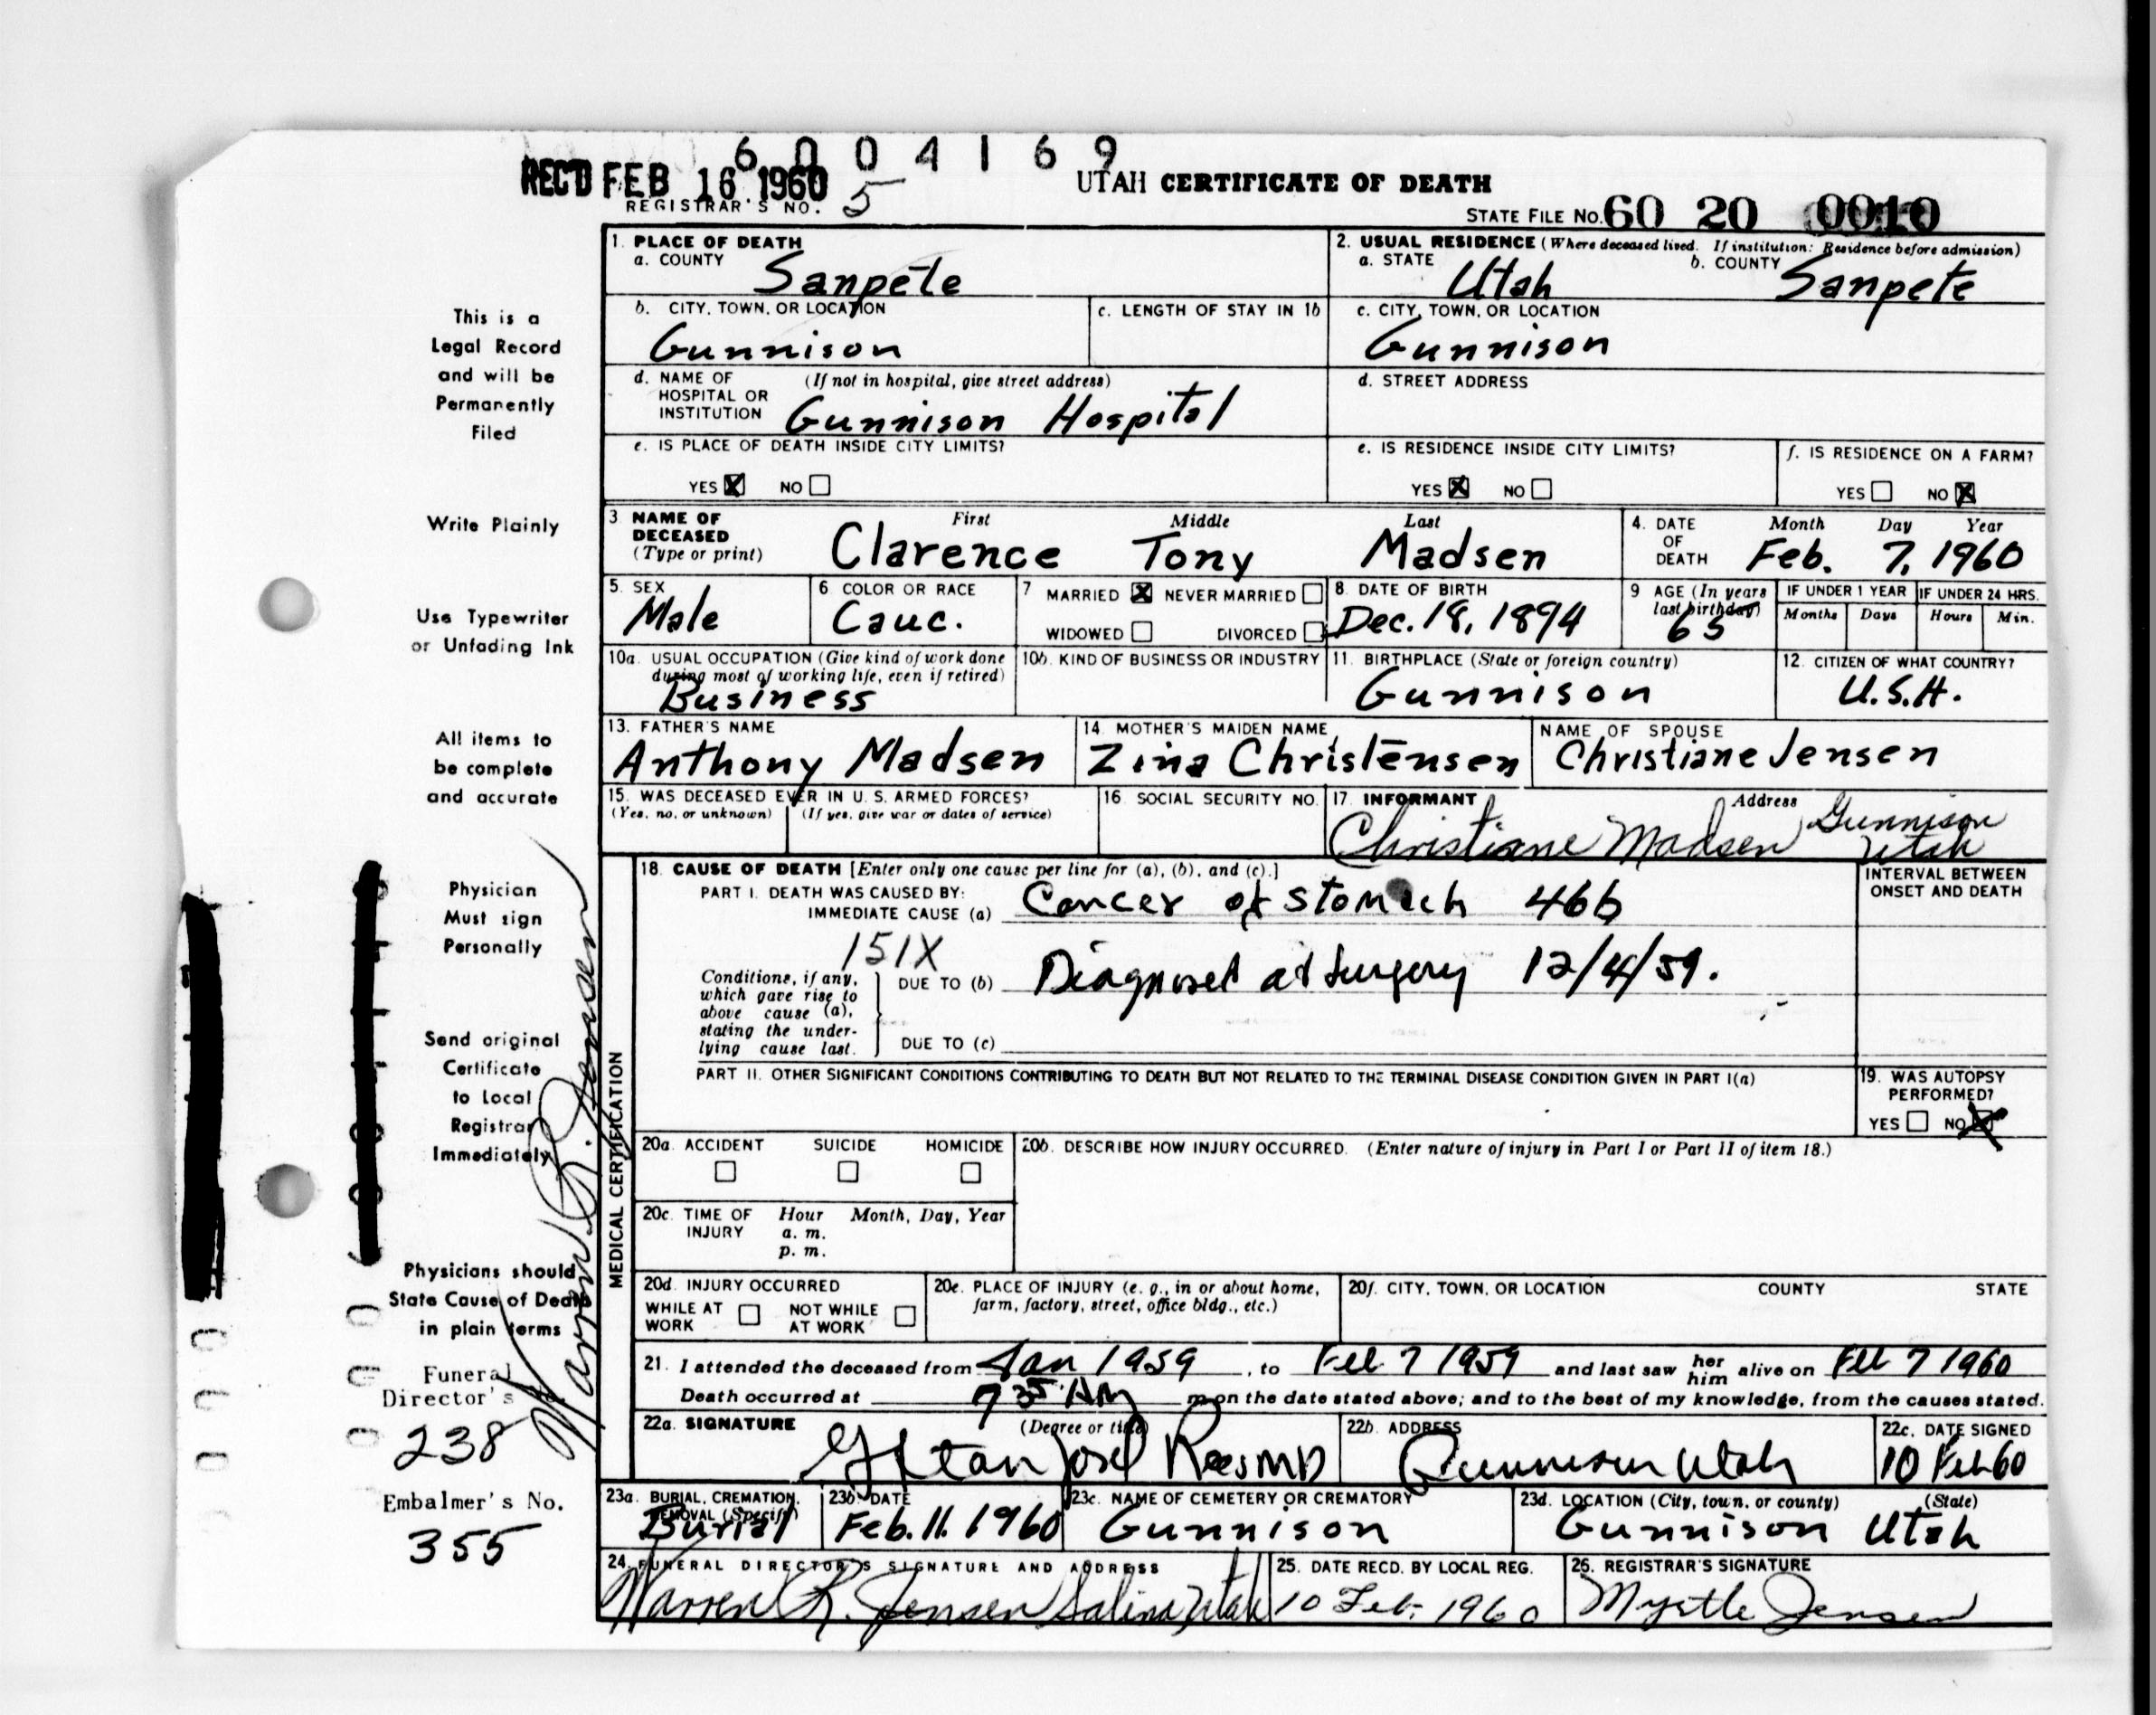 6004169
REC'D FEB 16 1960
REGISTRAR'S NO. 5
UTAH CERTIFICATE OF DEATH
STATE FILE No. 60 20 0010
1. PLACE OF DEATH
a. COUNTY Sanpete
2. USUAL RESIDENCE (Where deceased lived. If institution: Residence before admission)
a. STATE Utah b. COUNTY Sanpete
b. CITY, TOWN, OR LOCATION Gunnison
c. LENGTH OF STAY IN 1b
c. CITY, TOWN, OR LOCATION Gunnison
d. NAME OF HOSPITAL OR INSTITUTION (If not in hospital, give street address) Gunnison Hospital
d. STREET ADDRESS
e. IS PLACE OF DEATH INSIDE CITY LIMITS?
YES X NO
e. IS RESIDENCE INSIDE CITY LIMITS?
YES X NO
f. IS RESIDENCE ON A FARM?
YES NO X
3 NAME OF DECEASED (Type or print)
First Middle Last
Clarence Tony Madsen
4. DATE OF DEATH
Month Day Year
Feb. 7, 1960
5. SEX
Male
6 COLOR OR RACE
Cauc.
7 MARRIED X NEVER MARRIED
WIDOWED DIVORCED
8. DATE OF BIRTH
Dec. 18, 1894
9 AGE (In years last birthday)
65
IF UNDER 1 YEAR
Months Days
IF UNDER 24 HRS.
Hours Min.
10a. USUAL OCCUPATION (Give kind of work done during most of working life, even if retired)
Business
10b. KIND OF BUSINESS OR INDUSTRY
11. BIRTHPLACE (State or foreign country)
Gunnison
12. CITIZEN OF WHAT COUNTRY?
U.S.A.
13. FATHER'S NAME
Anthony Madsen
14. MOTHER'S MAIDEN NAME
Zina Christensen
NAME OF SPOUSE
Christiane Jensen
15. WAS DECEASED EVER IN U. S. ARMED FORCES?
(Yes, no, or unknown) (If yes, give war or dates of service)
16. SOCIAL SECURITY NO.
17. INFORMANT Address
Christiane Madsen Gunnison
Utah
MEDICAL CERTIFICATION
18. CAUSE OF DEATH [Enter only one cause per line for (a), (b), and (c).]
PART I. DEATH WAS CAUSED BY:
IMMEDIATE CAUSE (a) Cancer of stomach 466
151X
Conditions, if any, which gave rise to above cause (a), stating the underlying cause last.
DUE TO (b) Diagnosed at surgery 12/4/59.
DUE TO (c)
INTERVAL BETWEEN ONSET AND DEATH
PART II. OTHER SIGNIFICANT CONDITIONS CONTRIBUTING TO DEATH BUT NOT RELATED TO THE TERMINAL DISEASE CONDITION GIVEN IN PART I(a)
19. WAS AUTOPSY PERFORMED?
YES NO X
20a. ACCIDENT SUICIDE HOMICIDE
20b. DESCRIBE HOW INJURY OCCURRED. (Enter nature of injury in Part I or Part II of item 18.)
20c. TIME OF INJURY
Hour Month, Day, Year
a. m.
p. m.
20d. INJURY OCCURRED
WHILE AT WORK NOT WHILE AT WORK
20e. PLACE OF INJURY (e. g., in or about home, farm, factory, street, office bldg., etc.)
20f. CITY, TOWN, OR LOCATION COUNTY STATE
21. I attended the deceased from Jan 1959, to Feb 7 1959 and last saw her him alive on Feb 7 1960
Death occurred at 7 35 AM m on the date stated above; and to the best of my knowledge, from the causes stated.
22a. SIGNATURE (Degree or title)
Rees MD
22b. ADDRESS
Gunnison Utah
22c. DATE SIGNED
10 Feb 60
23a. BURIAL, CREMATION, REMOVAL (Specify)
Burial
23b. DATE
Feb. 11. 1960
23c. NAME OF CEMETERY OR CREMATORY
Gunnison
23d. LOCATION (City, town, or county) (State)
Gunnison Utah
24. FUNERAL DIRECTOR'S SIGNATURE AND ADDRESS
Warren R. Jensen Salina Utah
25. DATE RECD. BY LOCAL REG.
10 Feb. 1960
26. REGISTRAR'S SIGNATURE
Myrtle Jensen
This is a
Legal Record
and will be
Permanently
Filed
Write Plainly
Use Typewriter
or Unfading Ink
All items to
be complete
and accurate
Physician
Must sign
Personally
Send original
Certificate
to Local
Registrar
Immediately
Physicians should
State Cause of Death
in plain terms
Funeral
Director's
238
Embalmer's No.
355
Warren R. Jensen